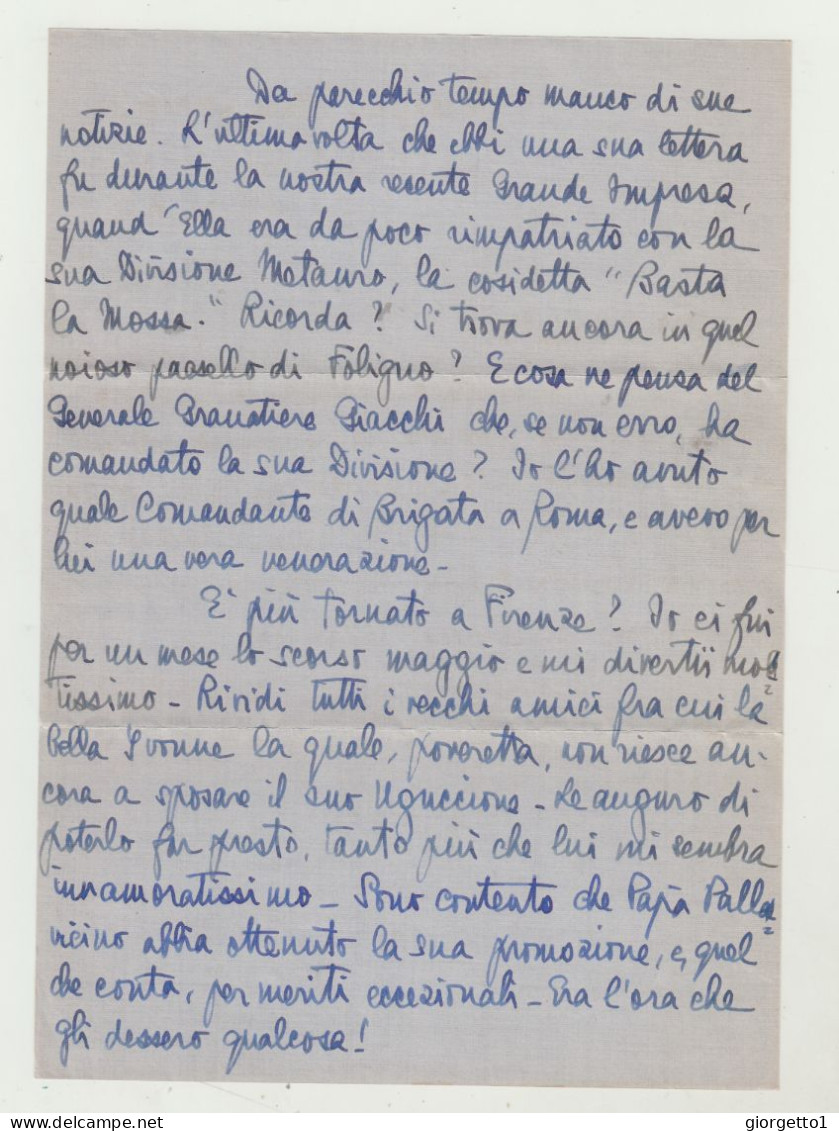 Da parecchio tempo manco di sue
notizie. L'ultima volta che ebbi una sua lettera
fu durante la nostra recente Grande Impresa,
quand'Ella era da poco rimpatriato con la
sua Divisione Metauro, la cosidetta "Basta
la Mossa." Ricorda? Si trova ancora in quel
noioso paesello di Foligno? E cosa ne pensa del
Generale Granatiere Giacchi che, se non erro, ha
comandato la sua Divisione? Io l'ho avuto
quale Comandante di Brigata a Roma, e avevo per
lui una vera venerazione -
E' più tornato a Firenze? Io ci fui
per un mese lo scorso maggio e mi divertii mol=
tissimo - Rividi tutti i vecchi amici fra cui la
bella Yvonne la quale, poveretta, non riesce an-
cora a sposare il suo Uguccione - Le auguro di
poterlo far presto, tanto più che lui mi sembra
innamoratissimo - Sono contento che Papà Palla=
vicino abbia ottenuto la sua promozione, e, quel
che conta, per meriti eccezionali - Era l'ora che
gli dessero qualcosa!
delcampe.net
giorgetto1